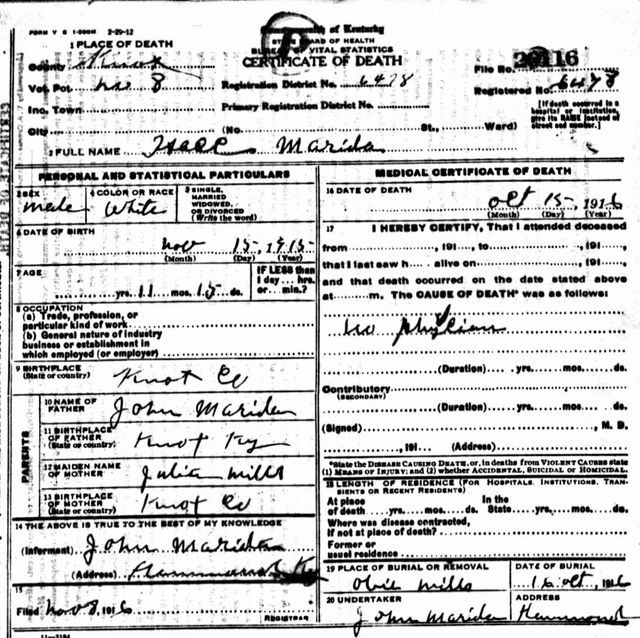 FORM V S 1-500M 2-29-12
Commonwealth of Kentucky
STATE BOARD OF HEALTH
BUREAU OF VITAL STATISTICS
CERTIFICATE OF DEATH
1 PLACE OF DEATH
County Knox
Vot. Pct. No 8
Inc. Town
City
(No. St., Ward)
Registration District No. 6478
Primary Registration District No.
File No. 20116
Registered No. 6478
[If death occurred in a hospital or institution, give its NAME instead of street and number.]
2 FULL NAME Marida
PERSONAL AND STATISTICAL PARTICULARS
3 SEX
male
4 COLOR OR RACE
White
5 SINGLE, MARRIED WIDOWED, OR DIVORCED (Write the word)
6 DATE OF BIRTH
Nov 15- 1915-
(Month) (Day) (Year)
7 AGE
yrs. 11 mos. 15 ds.
IF LESS than 1 day... hrs. or... min.?
8 OCCUPATION
(a) Trade, profession, or particular kind of work
(b) General nature of industry business or establishment in which employed (or employer)
9 BIRTHPLACE
(State or country)
Knot Co
PARENTS
10 NAME OF FATHER
John Marida
11 BIRTHPLACE OF FATHER
(State or country)
Knot Ky
12 MAIDEN NAME OF MOTHER
Julia Mills
13 BIRTHPLACE OF MOTHER
(State or country)
Knot Co
14 THE ABOVE IS TRUE TO THE BEST OF MY KNOWLEDGE
(Informant) John Marida
(Address) Hammond Ky
15
Filed Nov 8, 1916
REGISTRAR
11-3184
MEDICAL CERTIFICATE OF DEATH
16 DATE OF DEATH
Oct 15-, 1916
(Month) (Day) (Year)
17 I HEREBY CERTIFY, That I attended deceased
from , 191 , to , 191 ,
that I last saw h alive on , 191 ,
and that death occurred on the date stated above
at m. The CAUSE OF DEATH* was as follows:
No Physician
(Duration) yrs. mos. ds.
Contributory
(SECONDARY)
(Duration) yrs. mos. ds.
(Signed) , M. D.
, 191 (Address)
*State the DISEASE CAUSING DEATH, or, in deaths from VIOLENT CAUSES state
(1) MEANS OF INJURY; and (2) whether ACCIDENTAL, SUICIDAL or HOMICIDAL.
18 LENGTH OF RESIDENCE (FOR HOSPITALS, INSTITUTIONS, TRANSIENTS OR RECENT RESIDENTS)
At place of death yrs. mos. ds.
In the State yrs. mos. ds.
Where was disease contracted, if not at place of death?
Former or usual residence
19 PLACE OF BURIAL OR REMOVAL
Obie Mills
DATE OF BURIAL
16 Oct, 1916
20 UNDERTAKER
John Marida
ADDRESS
Hammond